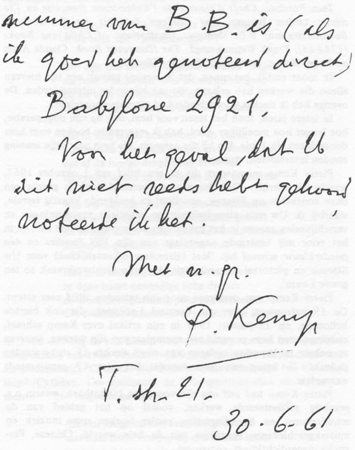 nummer van B.B. is (als
ik goed heb genoteerd direct)
Babylone 2921
Voor het geval, dat U
dit niet reeds hebt gehoord
noteerde ik het.
Met v. gr.
P. Kemp
30-6-61